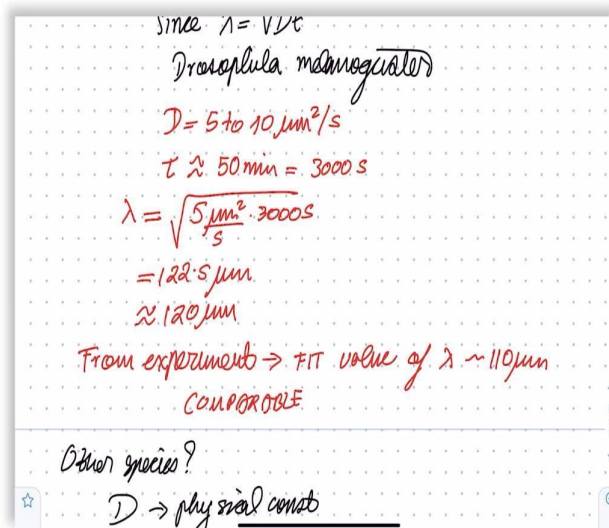 Since λ = √Dτ
Drosoplula melanogaster
D = 5 to 10 μm²/s
τ ≈ 50 min = 3000 s
λ = √(5 μm²/s · 3000 s)
= 122.5 μm
≈ 120 μm
From experiment → FIT value of λ ~ 110 μm
COMPARABLE
Other species?
D → physical const